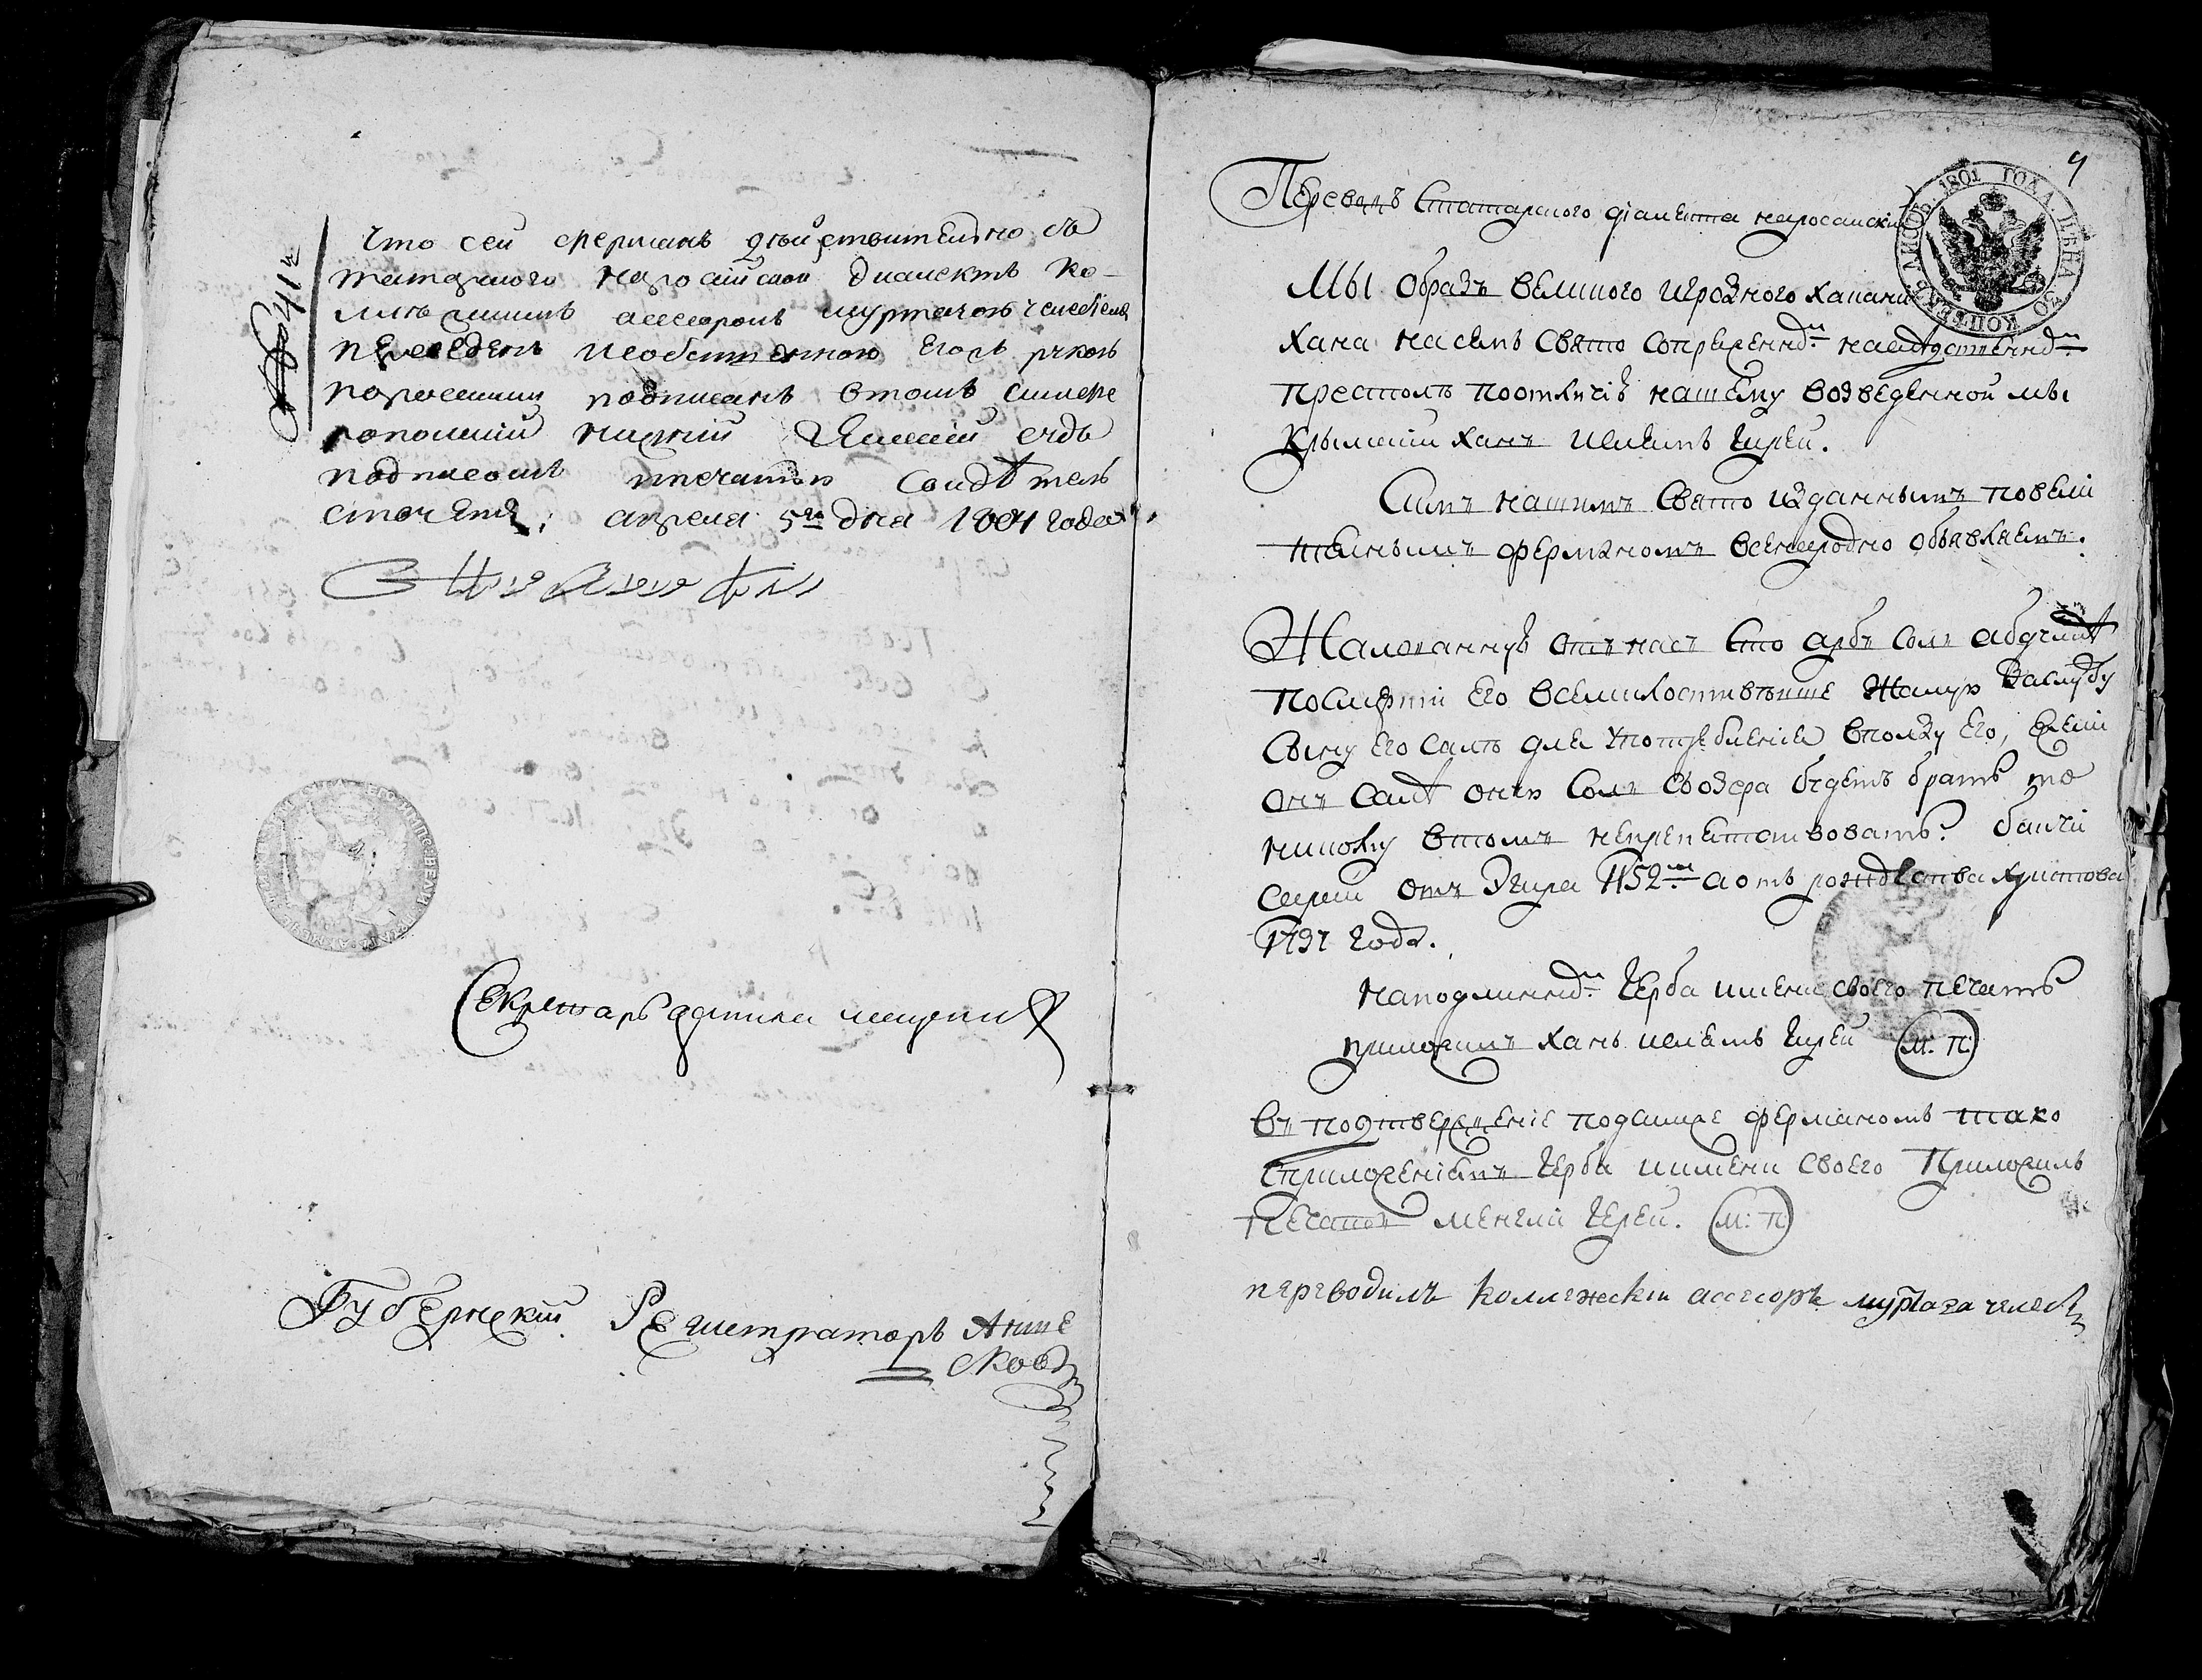 № 411й
Что сей ферманъ действительно съ
татарского на росийской диалектъ ко-
лежскимъ асесоромъ муртазою челебиемъ
переведенъ и собственною его рукою
по росийски подписанъ в томъ симфе
ропольский нижний земский судъ
подписомъ и печатью свидетель
ствуетъ. апреля 5го дня 1804 года.
Секретарь
Губернский Регистраторъ Анне
нковъ
9
1801 ГОДА ЦѢНА 30 КОПѢЕКЪ ЛИСТЪ
Переводъ с татарского діалекта на росийский
Мы образъ великого и грозного хакана
хана на семъ свято сопряженномъ наследственномъ
престолъ по отличію нашему возведенной мы
Крымский ханъ Селемъ Гирей.
Симъ нашимъ свято изданнымъ повели
тельнымъ ферманомъ всенародно объявляемъ.
Жалованную отъ насъ сто арбъ соли абдул
по смерти его всемилостивейше жалую за службу
сыну его саитъ для употребления в ползу его, ежели
онъ саит оную соль съ озера будетъ брать то
никому в томъ непрепятствовать. бакчи
сарай отъ Эгира 1152го а отъ рождества христова
1737 года.
На подлинномъ герба имени своего печать
приложилъ ханъ селемъ гирей М: П:
въ подтверждение подемже ферманомъ тако
с приложениемъ герба имени своего Приложилъ
печатью менгли герей. М: П
переводилъ колежски асесоръ муртаза челеби